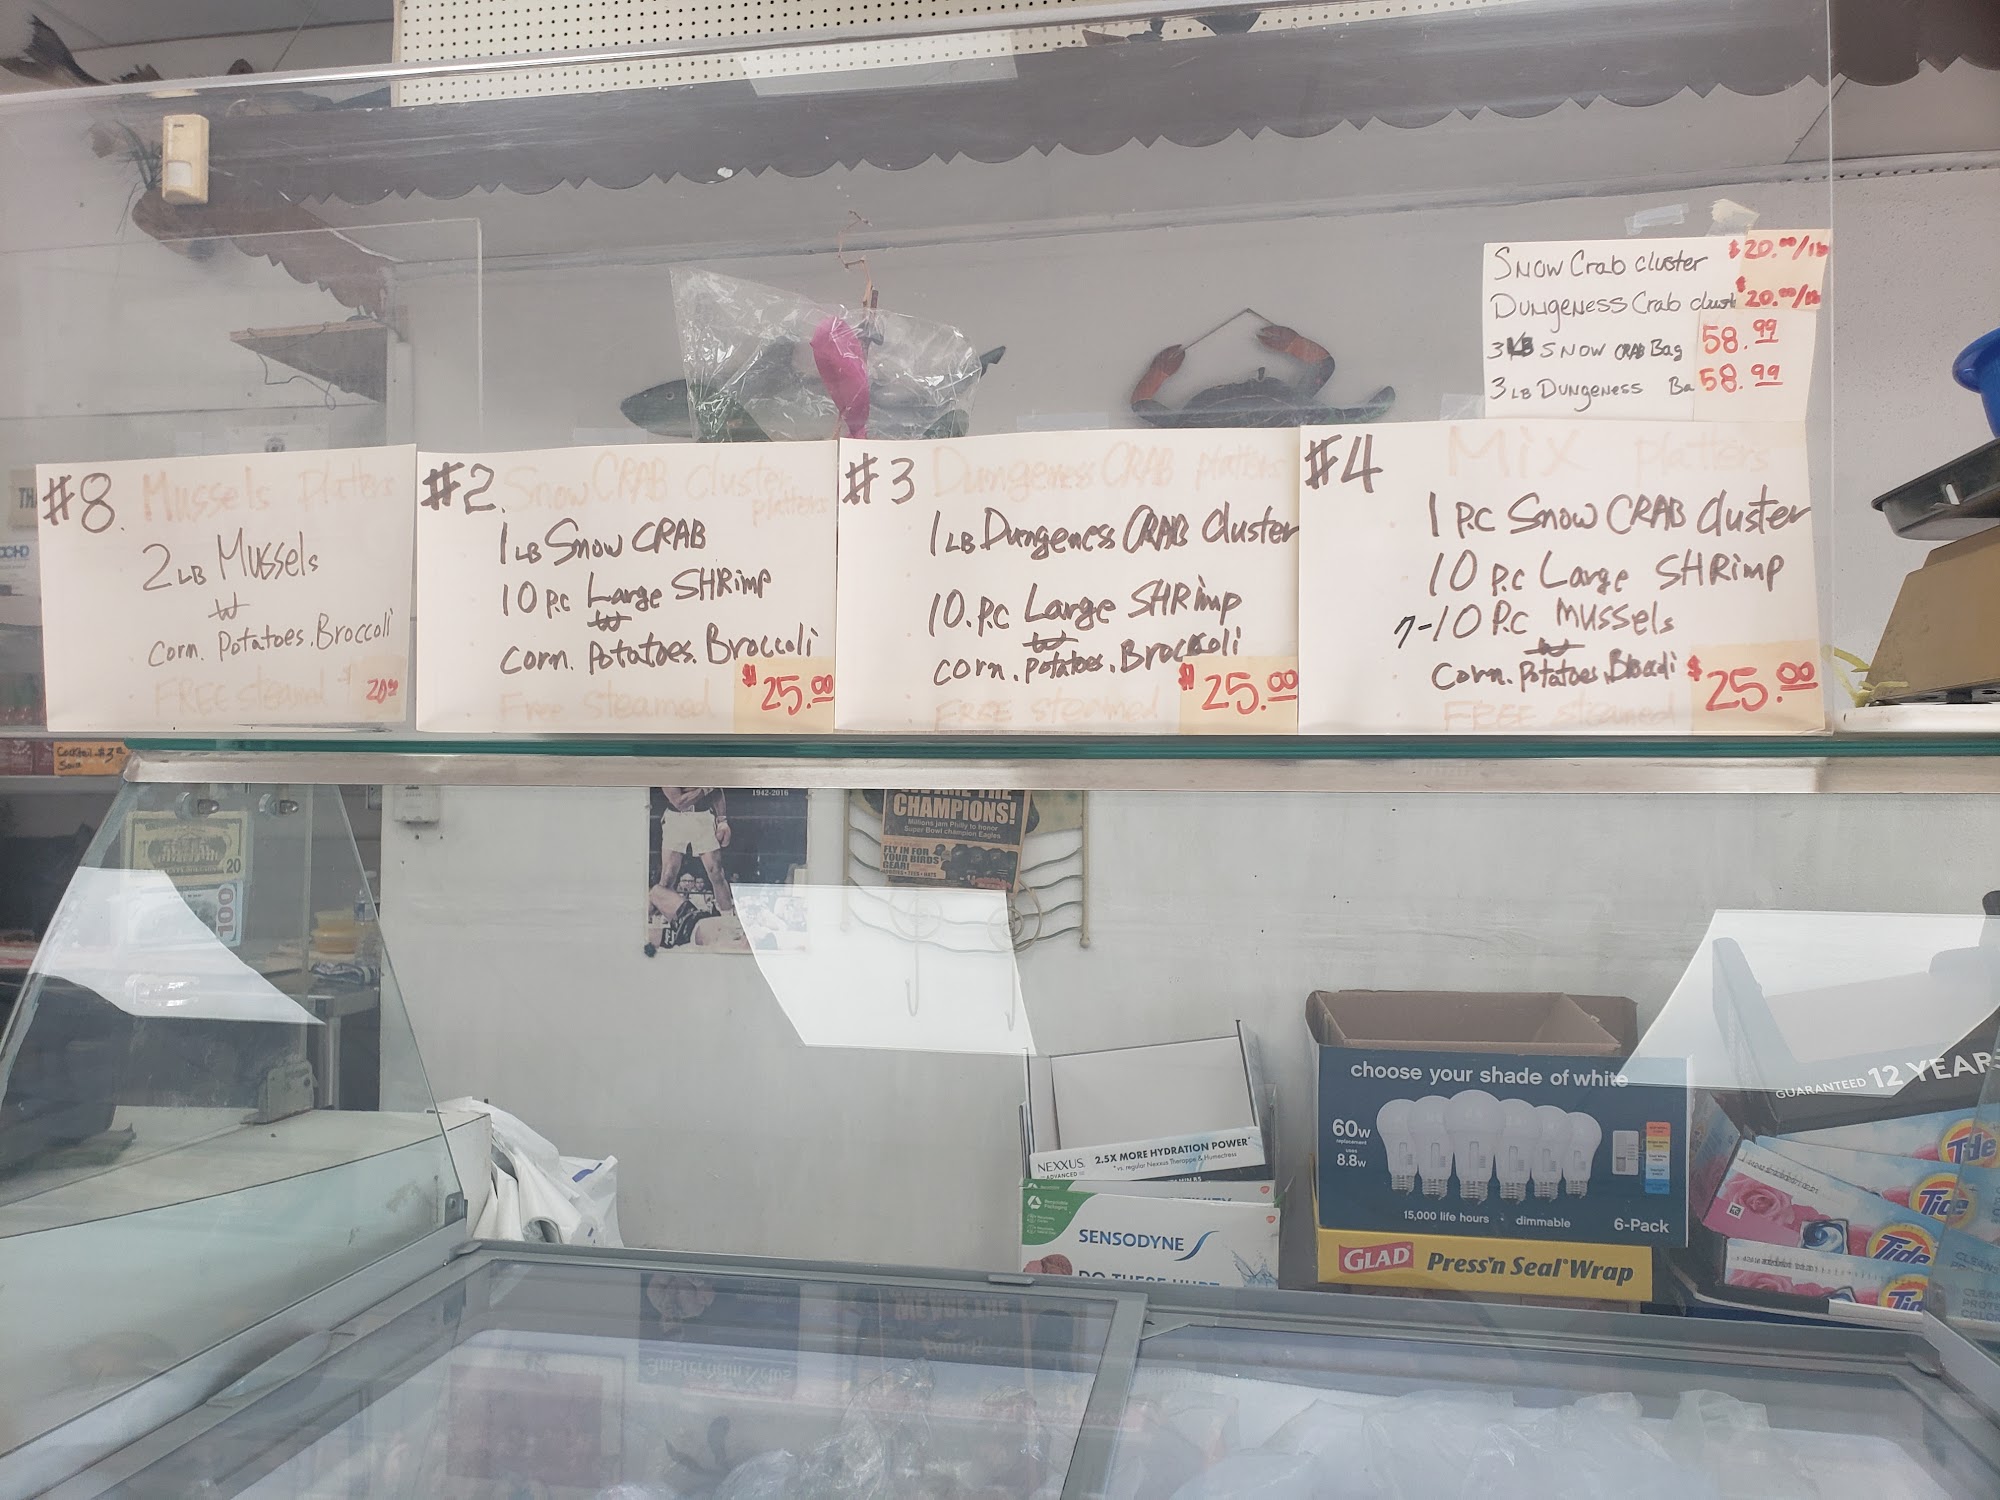 SNOW Crab cluster $20.00/lb
DUNGENESS Crab clust $20.00/lb
3LB SNOW CRAB Bag 58.99
3LB DUNGENESS Ba 58.99
#8. Mussels Platters
2LB Mussels
W
Corn. Potatoes. Broccoli
FREE steamed $20.00
#2. Snow CRAB Cluster
platters
1LB Snow CRAB
10 P.C Large SHRimp
W
Corn. Potatoes. Broccoli
Free Steamed $25.00
#3 Dungeness CRAB platters
1LB Dungeness CRAB Cluster
10. P.C Large SHRimp
W
Corn. Potatoes. Broccoli
FREE steamed $25.00
#4 Mix platters
1 P.C Snow CRAB Cluster
10 P.C Large SHRimp
7-10 P.C Mussels
W
Corn. Potatoes. Broccoli
FREE steamed $25.00
Cocktail $3
1942-2016
WE ARE THE
CHAMPIONS!
Millions jam Philly to honor
Super Bowl champion Eagles
FLY IN FOR
YOUR BIRDS
GEAR!
20
100
NEXXUS
ADVANCED
2.5X MORE HYDRATION POWER*
*vs. regular Nexxus Therappe & Humectress
SENSODYNE
DO THESE HURT
choose your shade of white
60w
replacement
uses
8.8w
15,000 life hours • dimmable
6-Pack
GLAD Press'n Seal Wrap
GUARANTEED 12 YEARS
Tide
Tide
Tide
Tid